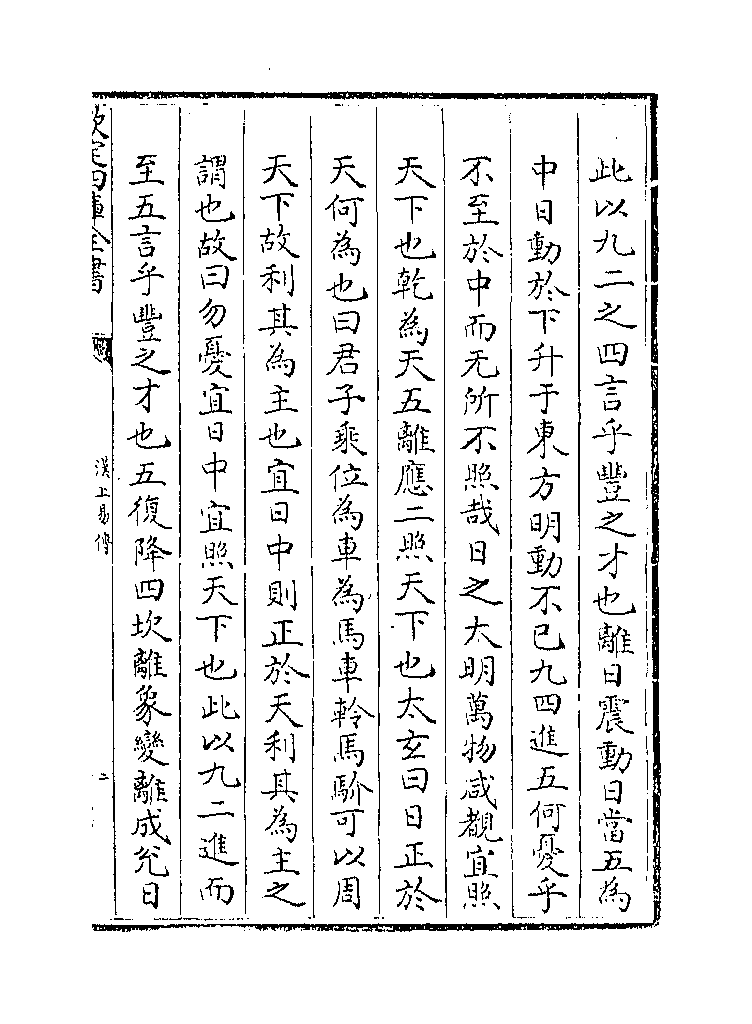 此以九二之四言乎豐之才也離日震動日當五為
中日動於下升于東方明動不已九四進五何憂乎
不至於中而无所不照哉日之大明萬物咸覩宜照
天下也乾為天五離應二照天下也太玄曰日正於
天何為也曰君子乘位為車為馬車軨馬馸可以周
天下故利其為主也宜日中則正於天利其為主之
謂也故曰勿憂宜日中宜照天下也此以九二進而
至五言乎豐之才也五復降四坎離象變離成兊日
欽定四庫全書
漢上易傳
二